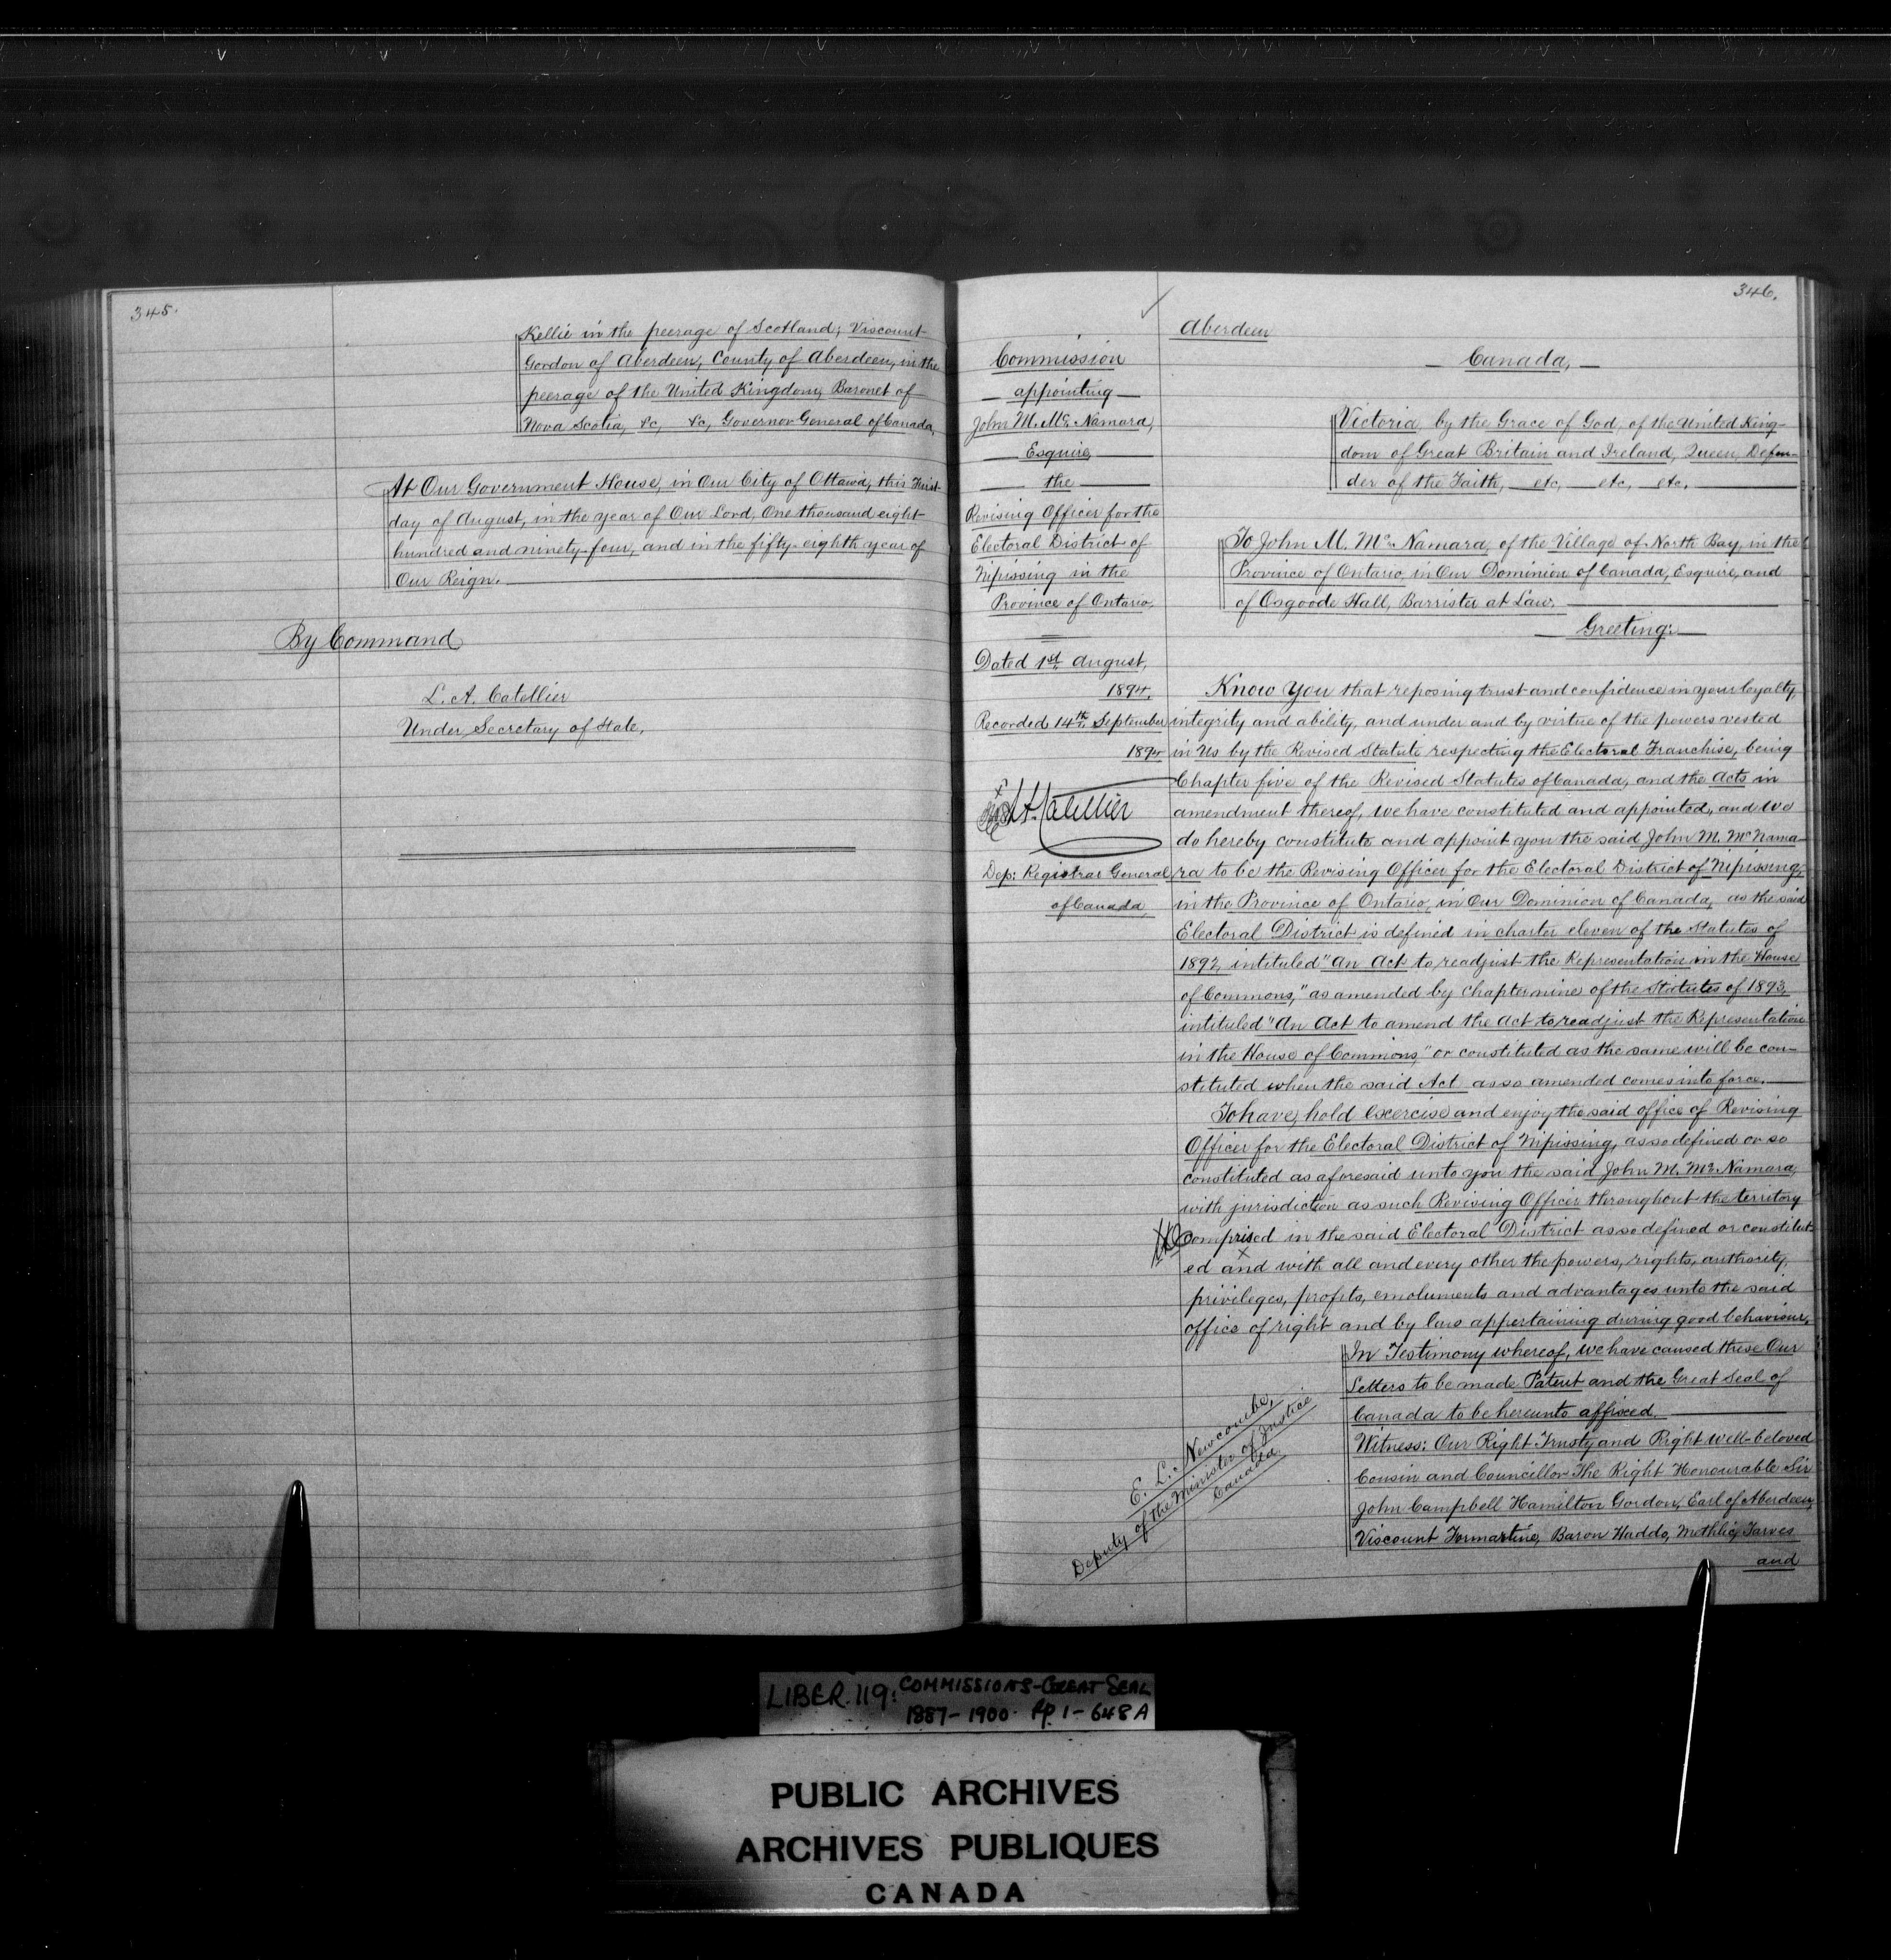 345.
Kellie in the peerage of Scotland; Viscount
Gordon of Aberdeen, County of Aberdeen, in the
peerage of the United Kingdom, Baronet of
Nova Scotia, &c, &c, Governor General of Canada,
At Our Government House, in Our City of Ottawa, this First
day of August, in the year of Our Lord, One thousand eight
hundred and ninety-four, and in the fifty-eighth year of
Our Reign.
By Command
L. A. Catellier
Under Secretary of State,
346.
Commission
appointing
John M. Mc. Namara,
Esquire,
the
Revising Officer for the
Electoral District of
Nipissing in the
Province of Ontario,
Dated 1st August,
1894.
Recorded 14th September
1894
L. A. Catellier
Dep: Registrar General
of Canada,
Aberdeen
Canada,
Victoria, by the Grace of God, of the United King-
dom of Great Britain and Ireland, Queen, Defen-
der of the Faith, etc, etc, etc.
To John M. Mc. Namara, of the Village of North Bay, in the
Province of Ontario, in Our Dominion of Canada, Esquire, and
of Osgoode Hall, Barrister at Law.
Greeting:
Know You that reposing trust and confidence in your loyalty,
integrity and ability, and under and by virtue of the powers vested
in Us by the Revised Statute respecting the Electoral Franchise, being
Chapter five of the Revised Statutes of Canada, and the Acts in
amendment thereof, We have constituted and appointed, and We
do hereby constitute and appoint you the said John M. McNama-
ra to be the Revising Officer for the Electoral District of Nipissing,
in the Province of Ontario, in Our Dominion of Canada, as the said
Electoral District is defined in charter eleven of the Statutes of
1892, intituled "An Act to readjust the Representation in the House
of Commons," as amended by Chapter nine of the Statutes of 1893,
intituled "An Act to amend the Act to readjust the Representation
in the House of Commons," or constituted as the same will be con-
stituted when the said Act as so amended comes into force.
To have, hold exercise and enjoy the said office of Revising
Officer for the Electoral District of Nipissing, as so defined or so
constituted as aforesaid unto you the said John M. Mc. Namara,
with jurisdiction as such Revising Officer throughout the territory
comprised in the said Electoral District as so defined or constitut-
ed and with all and every other the powers, rights, authority,
privileges, profits, emoluments and advantages unto the said
office of right and by law appertaining during good behaviour,
In Testimony whereof, We have caused these Our
Letters to be made Patent and the Great Seal of
Canada to be hereunto affixed,
Witness: Our Right Trusty and Right Well-beloved
Cousin and Councillor The Right Honourable Sir
John Campbell Hamilton Gordon, Earl of Aberdeen,
Viscount Formartine, Baron Haddo, Methlic, Tarves
and
E. L. Newcombe,
Deputy of the Minister of Justice
Canada
LIBER. 119: COMMISSIONS-GREAT SEAL
1887-1900. PP. 1-648A
PUBLIC ARCHIVES
ARCHIVES PUBLIQUES
CANADA